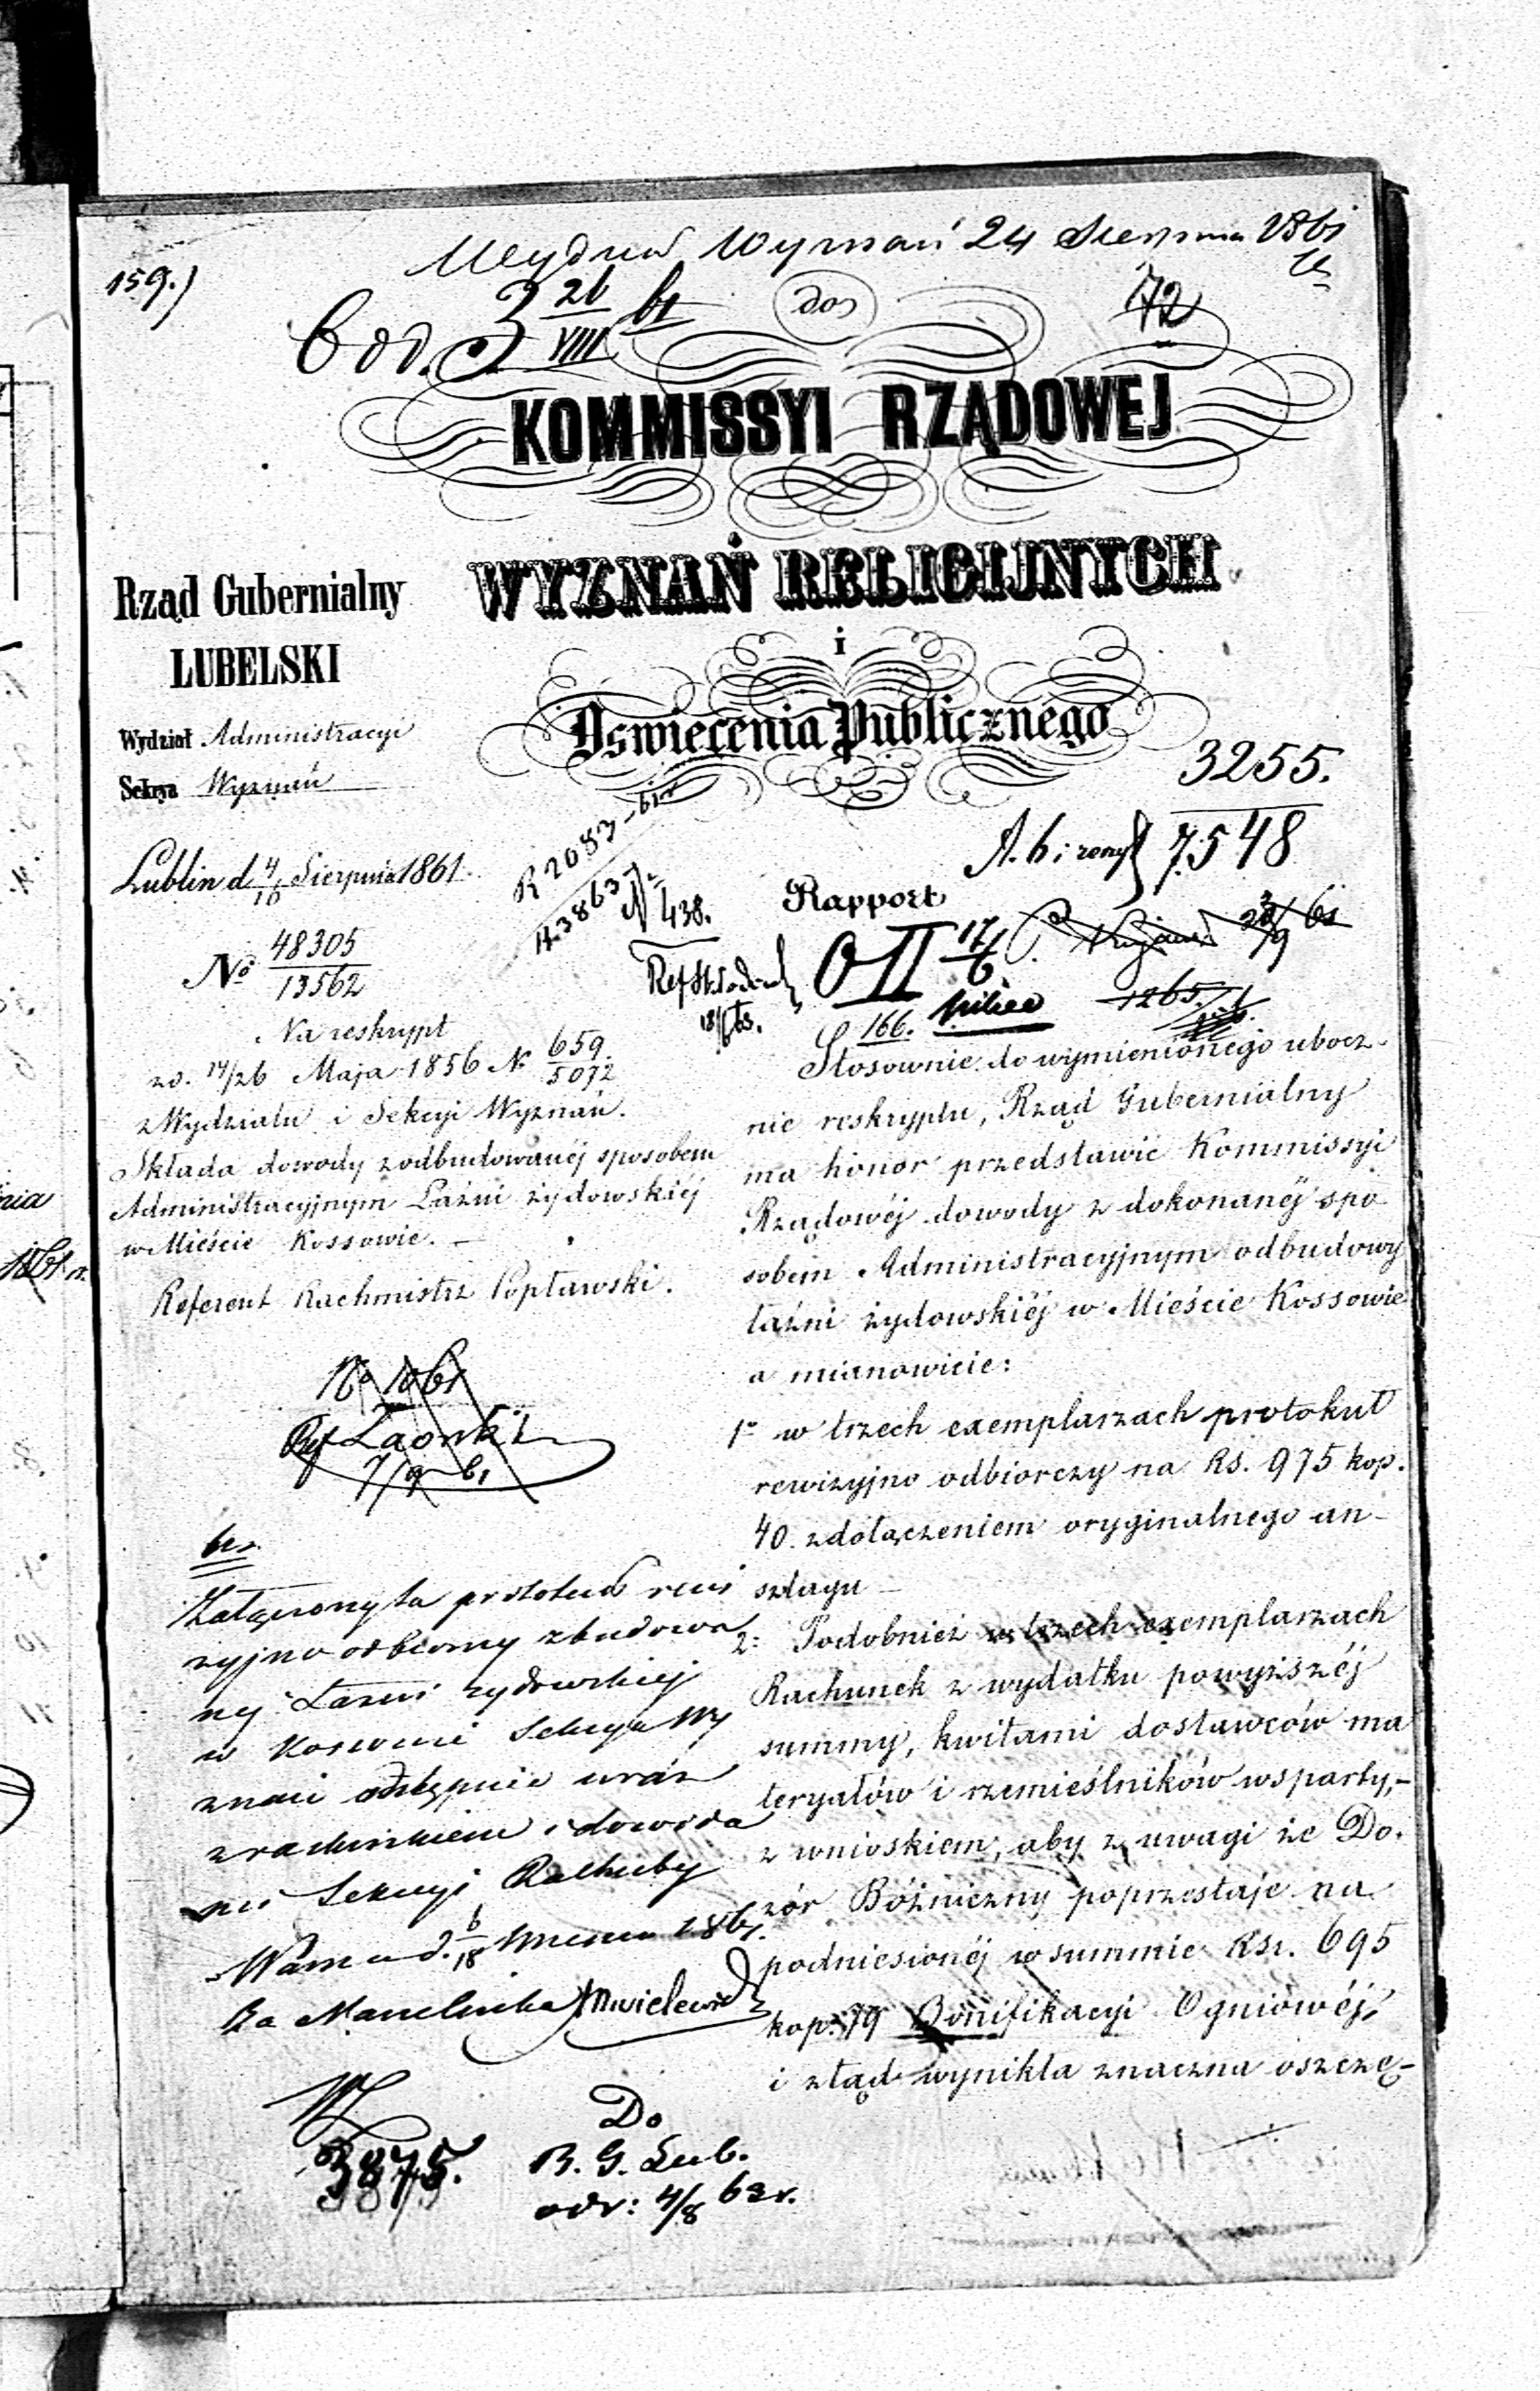 Wydział Wyznań 24 Sierpnia 1861
159.)
do
72
26
VIII
61
KOMMISSYI RZĄDOWEJ
WYZNAŃ RELIGIJNYCH
i
Oświecenia Publicznego
Rząd Gubernialny
LUBELSKI
Wydział Administracyi
Sekcya Wyznań
Lublin d. 4/16 Sierpnia 1861.
No 48305
13562
3255.
7548
R 2083
N. 438.
Rapport
O II 17/6
18/6 63.
166.
1265.
Na reskrypt
z d. 14/26 Maja 1856 N. 659
5072
z Wydziału i Sekcyi Wyznań.
Składa dowody z odbudowanéj sposobem
Administracyjnym Łaźni żydowskiéj
w Mieście Kossowie.
Referent Rachmistrz Popławski.
Stosownie do wymienionego ubocz-
nie reskryptu, Rząd Gubernialny
ma honor przedstawić Kommissyi
Rządowéj dowody z dokonanéj spo
sobem Administracyjnym odbudowy
łaźni żydowskiéj w Mieście Kossowie
a mianowicie:
1e w trzech exemplarzach protokuł
rewizyjno odbiorczy na Rs. 975 kop.
40. z dołączeniem oryginalnego an-
szlagu
2: Podobnież w trzech exemplarzach
Rachunek z wydatku powyższéj
summy, kwitami dostawców ma
teryałów i rzemieślników wsparty,-
z wnioskiem, aby z uwagi że Do-
zór Bóźniczny poprzestaje na
podniesionéj w summie Rsr. 695
kop. 79 Bonifikacyi Ogniowéj,
i ztąd wynikła znaczna oszczę-
No 1061
7/9 61
Załączony tu protokuł rewi
zyjno odbiorczy zbudowa
néj Łazni żydowskiej
w Kosowie Sekcya Wy
znań odstępuje wraz
z rachunkiem i dowoda
mi Sekcyi Rachuby
Warszawa d. 6/18 Września 1861.
Za Naczelnika
3875.
Do
R. G. Lub.
odr: 4/8 63 r.